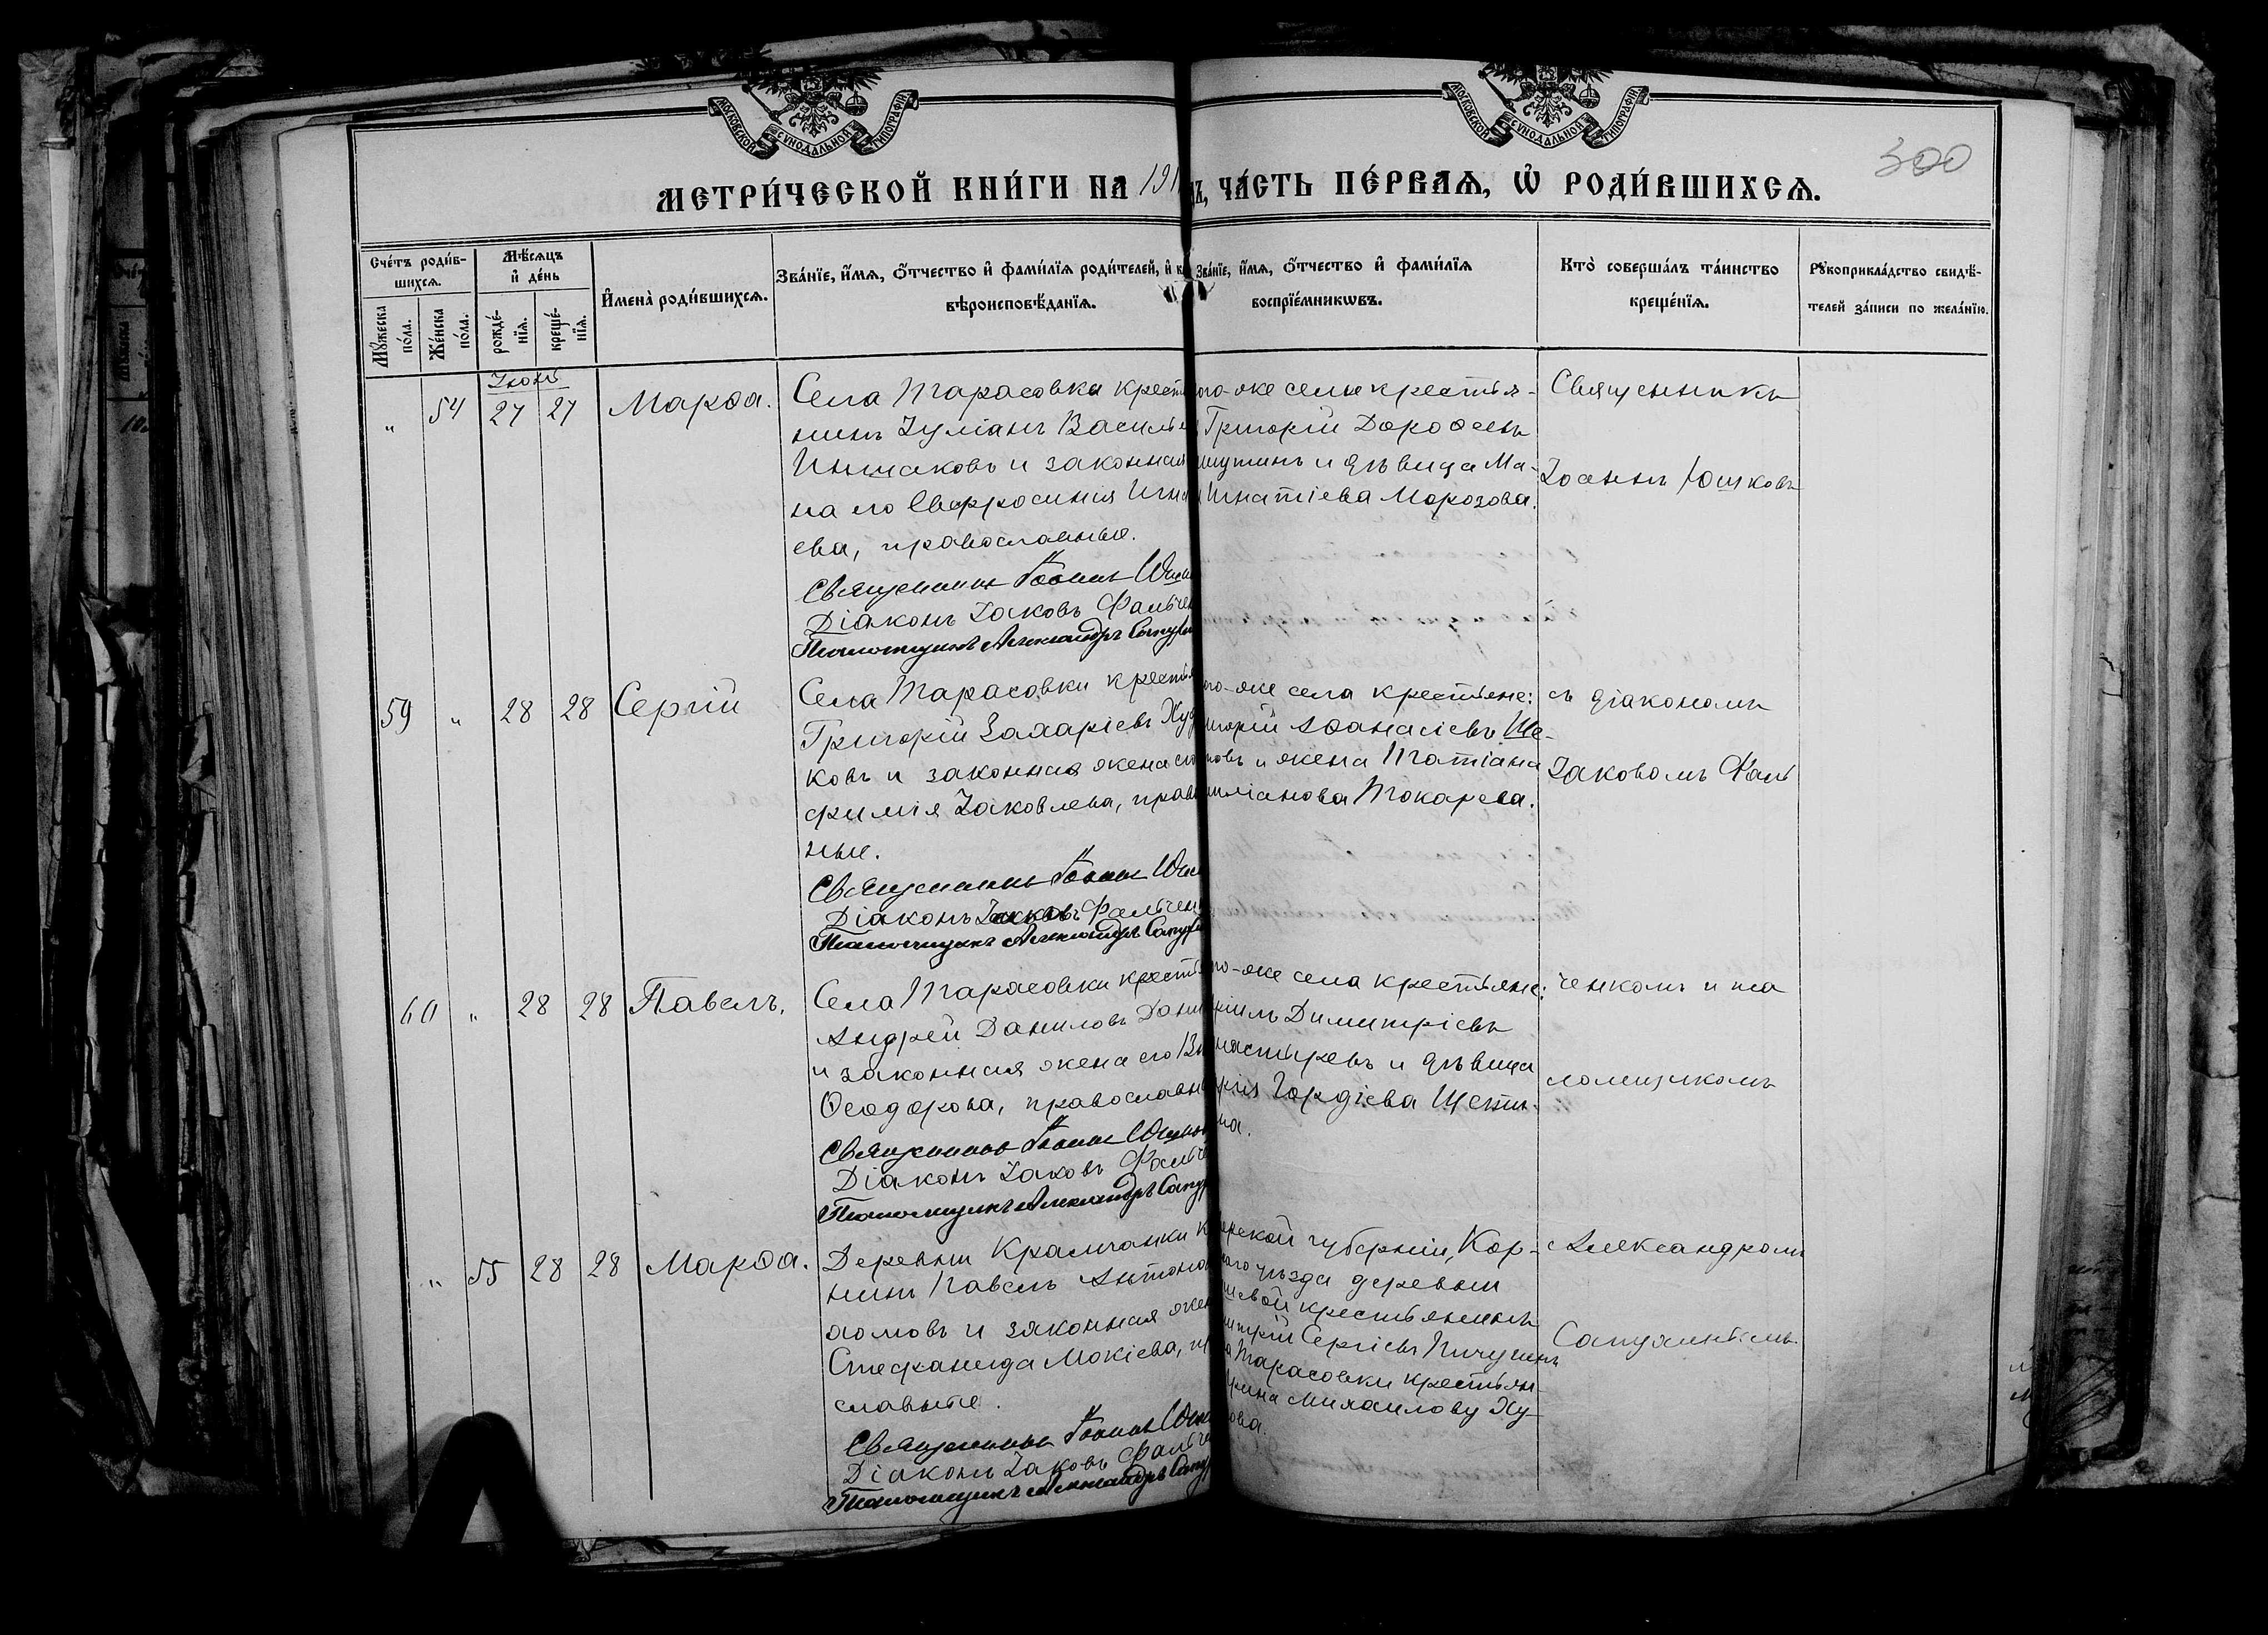 МОСКОВСКОЙ СѴНОДАЛЬНОЙ ТИПОГРАФІИ
МОСКОВСКОЙ СѴНОДАЛЬНОЙ ТИПОГРАФІИ
300
МЕТРИ́ЧЕСКОЙ КНИ́ГИ НА 191
ЧА́СТЬ ПЕ́РВАѦ, Ѡ҆ РОДИ́ВШИХСѦ.
Сче́тъ роди́в-
шихсѧ.
Мꙋ́жеска по́ла.
Же́нска по́ла.
Мѣ́сѧцъ
и҆ де́нь
рожде́-
нїѧ.
креще́-
нїѧ.
И҆мена̀ роди́вшихсѧ.
Зва́нїе, и҆́мѧ, ѻ҆́тчество и҆ фами́лїѧ роди́телей, и҆
вѣроисповѣ́данїѧ.
Зва́нїе, и҆́мѧ, ѻ҆́тчество и҆ фами́лїѧ
воспрїе́мникѡвъ.
Кто̀ соверша́лъ та́инство
креще́нїѧ.
Рꙋкоприкла́дство свидѣ́-
телей за́писи по жела́нїю.
Іюнь
„ 54 27 27 Марѳа.
Села Тарасовки крест
нинъ Іуліанъ Василье
Иншаковъ и законная
на его Евфросинія Игна
ева, православные.
Священникъ Іоаннъ Юшк
Діаконъ Іаковъ Фальчен
Псаломщикъ Александръ Сапух
ого-же села крестья-
Григорій Дороѳеевъ
шутинъ и дѣвица Ма-
Игнатіева Морозова.
Священникъ
Іоаннъ Юшковъ
59 „ 28 28 Сергій
Села Тарасовки крестья
Григорій Захаріевъ Худ
ковъ и законная жена его
фимія Іаковлева, прав
ные.
Священникъ Іоаннъ Юшк
Діаконъ Іаковъ Фальчен
Псаломщикъ Александръ Сапух
ого-же села крестьяне:
игорій Аѳанасіевъ Ше-
ковъ и жена Татіана
миліанова Токарева.
съ діакономъ
Іаковомъ Фаль
60 „ 28 28 Павелъ.
Села Тарасовки кресть
Андрей Даниловъ Дани
и законная жена его
Ѳеодорова, православн
Священникъ Іоаннъ Юшко
Діаконъ Іаковъ Фальче
Псаломщикъ Александръ Сапу
го-же села крестьяне:
ріилъ Димитріевъ
настыревъ и дѣвица
рія Гордіева Щети-
на.
ченкомъ и пса
ломщикомъ
„ 55 28 28 Марѳа.
Деревни Крамчанки к
нинъ Павелъ Антоно
хомовъ и законная жен
Стефанида Мокіева, пр
славные.
Священникъ Іоаннъ Юшк
Діаконъ Іаковъ Фальче
Псаломщикъ Александръ Сапу
рской губерніи, Кор-
ного уѣзда деревни
шевой крестьянинъ
итрій Сергіевъ Пичугинъ
а Тарасовки крестьян-
рина Михаилову Ху-
ова.
Александромъ
Сапухинымъ.